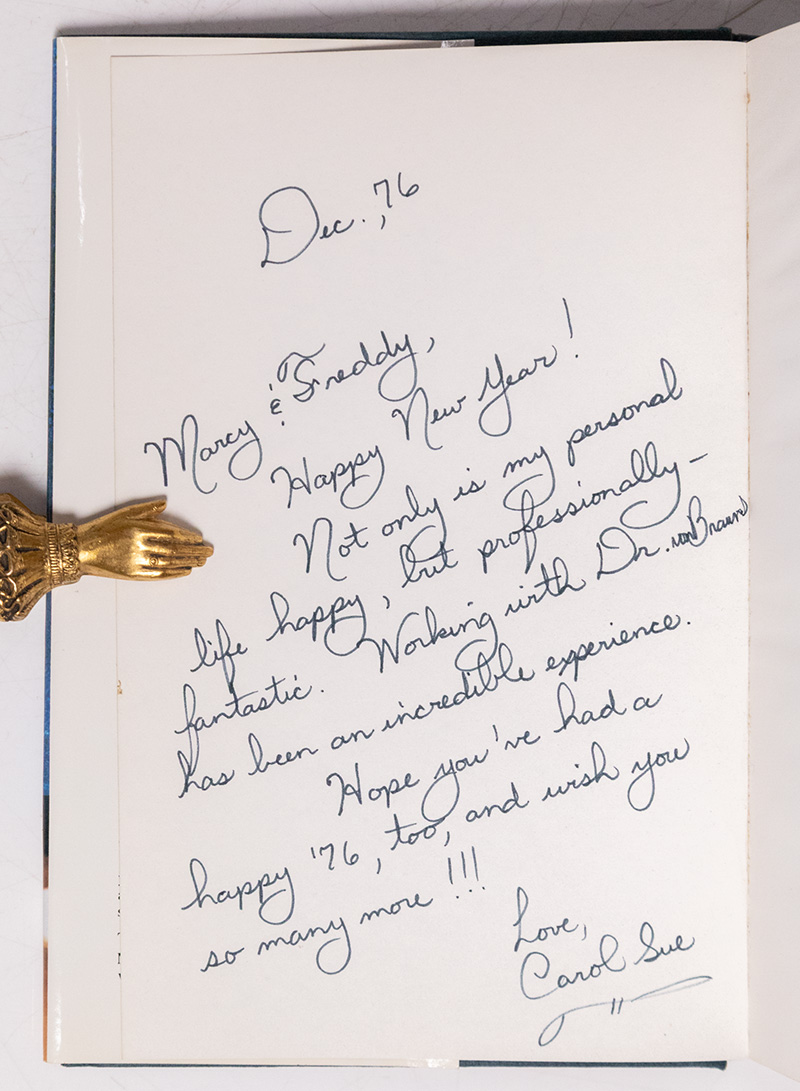 Dec., 76
Marcy & Freddy,
Happy New Year!
Not only is my personal
life happy, but professionally—
fantastic. Working with Dr. von Braun
has been an incredible experience.
Hope you've had a
happy '76, too, and wish you
so many more!!!
Love,
Carol Sue